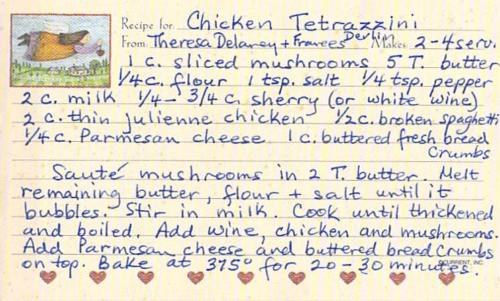 Recipe for Chicken Tetrazzini
From Theresa Delaney + Frances Devlin Makes 2-4 serv.
1 c. sliced mushrooms 5 T. butter
1/4 c. flour 1 tsp. salt 1/4 tsp. pepper
2 c. milk 1/4 - 3/4 c. sherry (or white wine)
2 c. thin julienne chicken 1/2 c. broken spaghetti
1/4 c. Parmesan cheese 1 c. buttered fresh bread
Crumbs
Sauté mushrooms in 2 T. butter. Melt
remaining butter, flour + salt until it
bubbles. Stir in milk. Cook until thickened
and boiled. Add wine, chicken and mushrooms.
Add Parmesan cheese and buttered bread crumbs
on top. Bake at 375° for 20-30 minutes.
©CURRENT, INC.